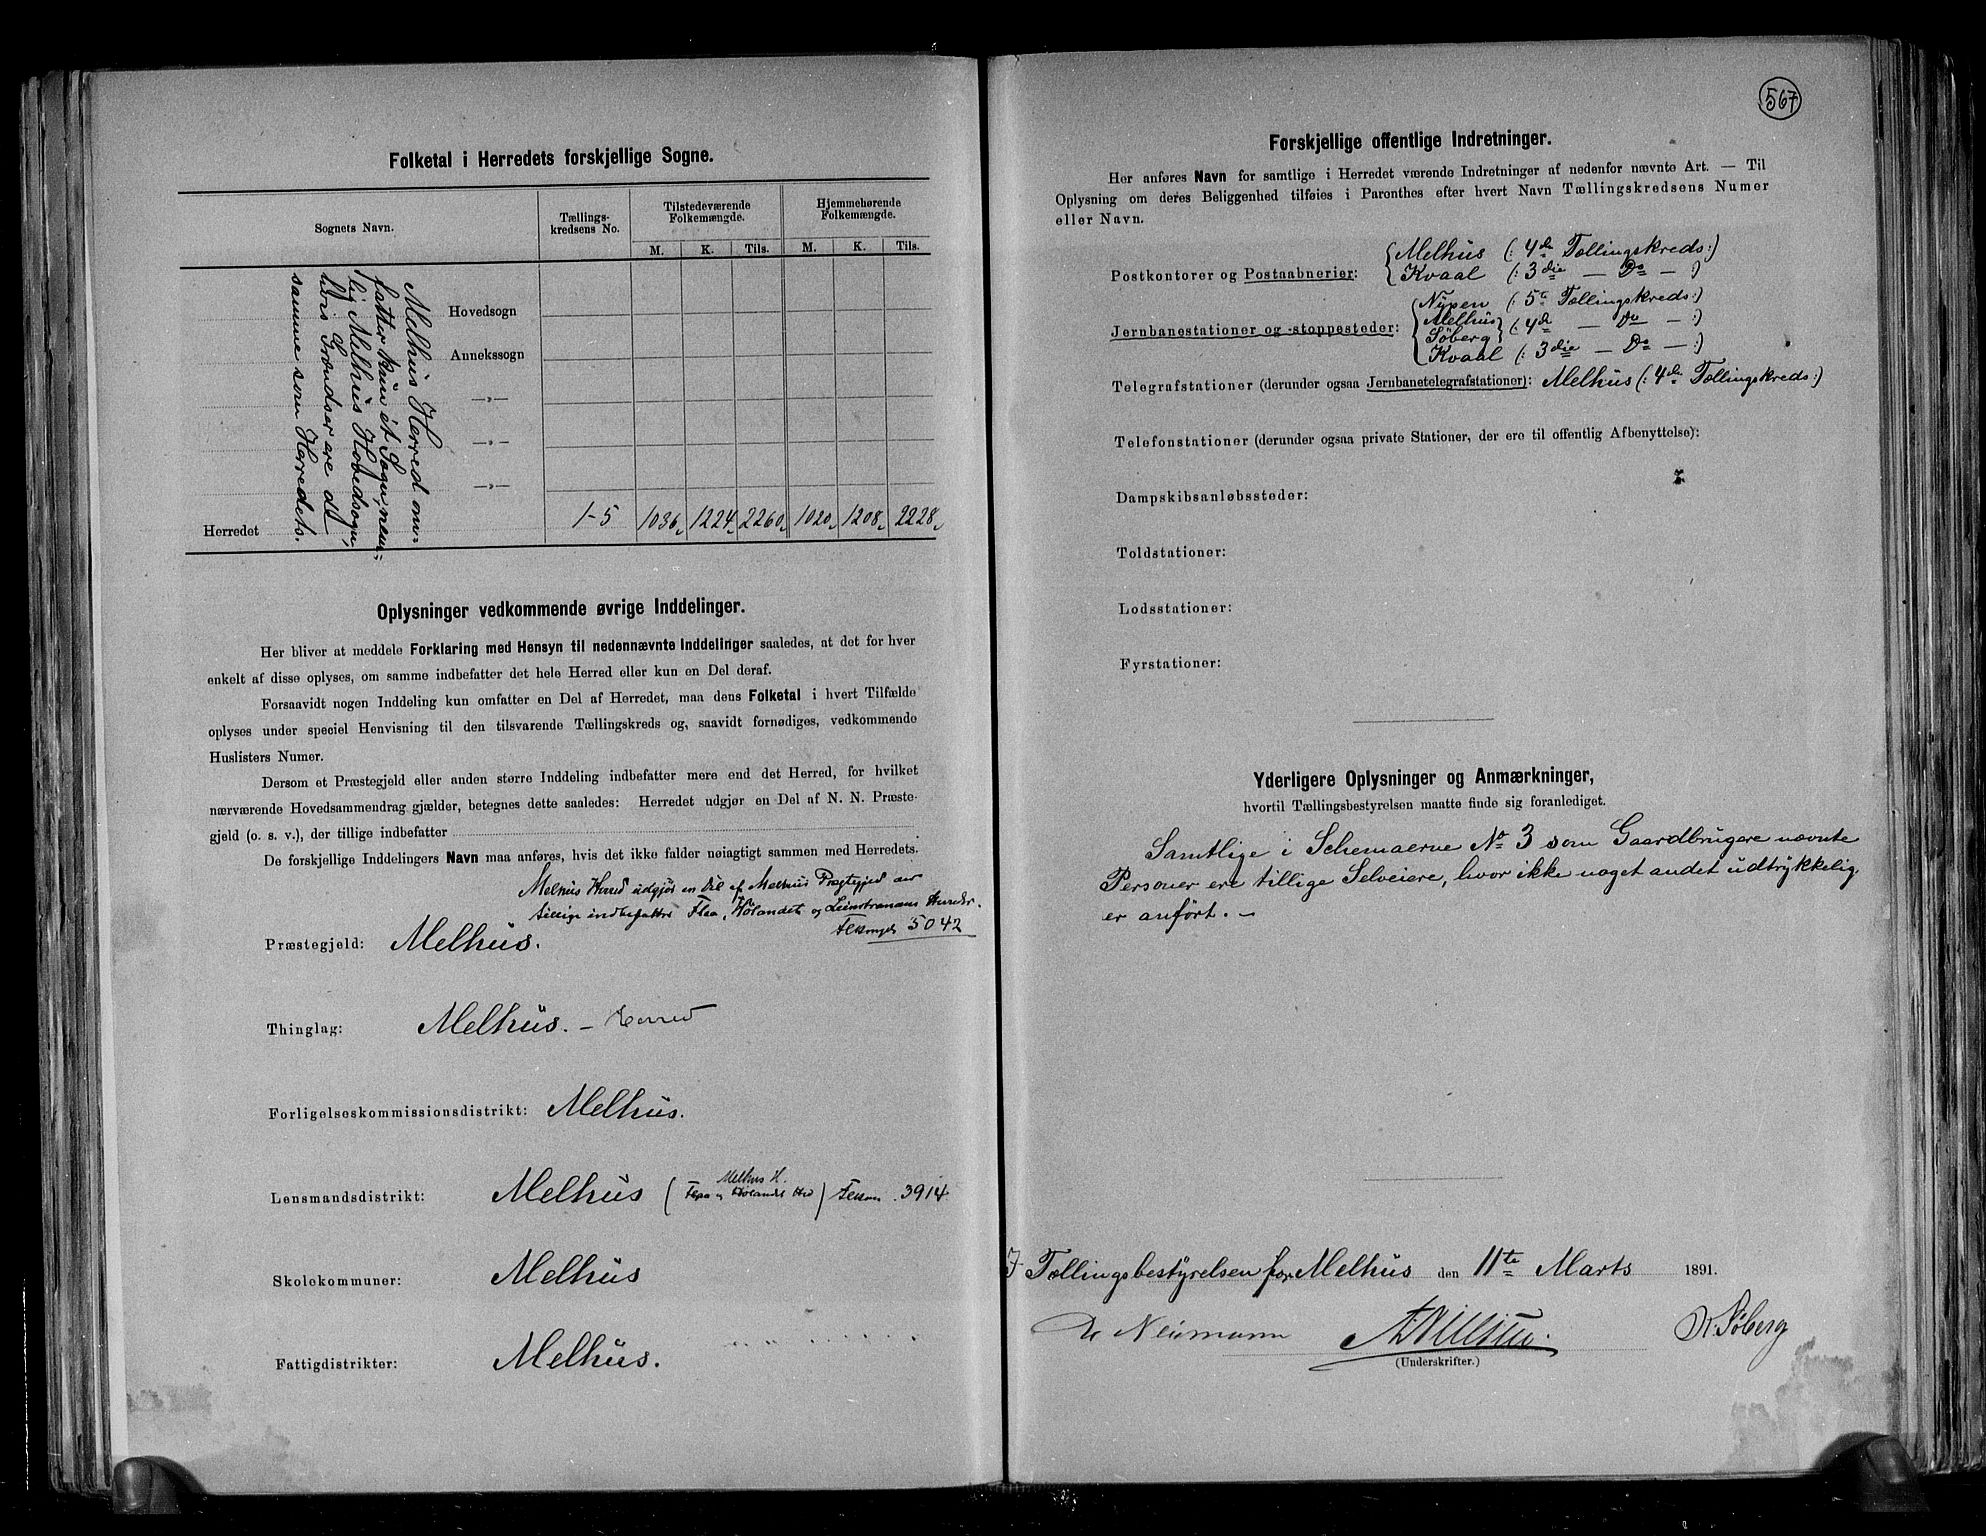 Folketal i Herredets forskjellige Sogne.
Sognets Navn.
Tællings-
kredsens No.
Tilstedeværende
Folkemængde.
Hjemmehørende
Folkemængde.
M. K. Tils. M. K. Tils.
Hovedsogn
Annekssogn
—„—
—„—
—„—
Melhus Herred om-
fatter kun ét Sogn, nem-
lig Melhus Hovedsogn,
hvis Grændser ere de
samme som Herredets.
Herredet 1-5 1036 1224 2260 1020 1208 2228
Oplysninger vedkommende øvrige Inddelinger.
Her bliver at meddele Forklaring med Hensyn til nedennævnte Inddelinger saaledes, at det for hver
enkelt af disse oplyses, om samme indbefatter det hele Herred eller kun en Del deraf.
Forsaavidt nogen Inddeling kun omfatter en Del af Herredet, maa dens Folketal i hvert Tilfælde
oplyses under speciel Henvisning til den tilsvarende Tællingskreds og, saavidt fornødiges, vedkommende
Huslisters Numer.
Dersom et Præstegjeld eller anden større Inddeling indbefatter mere end det Herred, for hvilket
nærværende Hovedsammendrag gjælder, betegnes dette saaledes: Herredet udgjør en Del af N. N. Præste-
gjeld (o. s. v.), der tillige indbefatter
De forskjellige Inddelingers Navn maa anføres, hvis det ikke falder nøiagtigt sammen med Herredets.
Melhus Herred udgjør en Del af Melhus Præstegjeld der
tillige indbefatter Flaa, Hølandet og Leinstrandens Herreder.
5042
Præstegjeld: Melhus.
Thinglag: Melhus. – Herred
Forligelseskommissionsdistrikt: Melhus.
Melhus H.
Lensmandsdistrikt: Melhus (Flaa og Hølandet Hrd) 3914
Skolekommuner: Melhus
Fattigdistrikter: Melhus.
567
Forskjellige offentlige Indretninger.
Her anføres Navn for samtlige i Herredet værende Indretninger af nedenfor nævnte Art. — Til
Oplysning om deres Beliggenhed tilføies i Paronthes efter hvert Navn Tællingskredsens Numer
eller Navn.
Melhus (: 4de Tællingskreds:)
Postkontorer og Postaabnerier: Kvaal (: 3die — Do — :)
Nypen (: 5te Tællingskreds:)
Jernbanestationer og -stoppesteder: Melhus
Søberg (: 4de — Do — :)
Kvaal (: 3die — Do — :)
Telegrafstationer (derunder ogsaa Jernbanetelegrafstationer): Melhus (: 4de Tællingskreds:)
Telefonstationer (derunder ogsaa private Stationer, der ere til offentlig Afbenyttelse):
Dampskibsanløbssteder:
Toldstationer:
Lodsstationer:
Fyrstationer:
Yderligere Oplysninger og Anmærkninger,
hvortil Tællingsbestyrelsen maatte finde sig foranlediget.
Samtlige i Schemaerne No 3 som Gaardbrugere nævnte
Personer ere tillige Selveiere, hvor ikke noget andet udtrykkelig
er anført. –
I Tællingsbestyrelsen for Melhus den 11te Marts 1891.
Neumann
Søberg
(Underskrifter.)